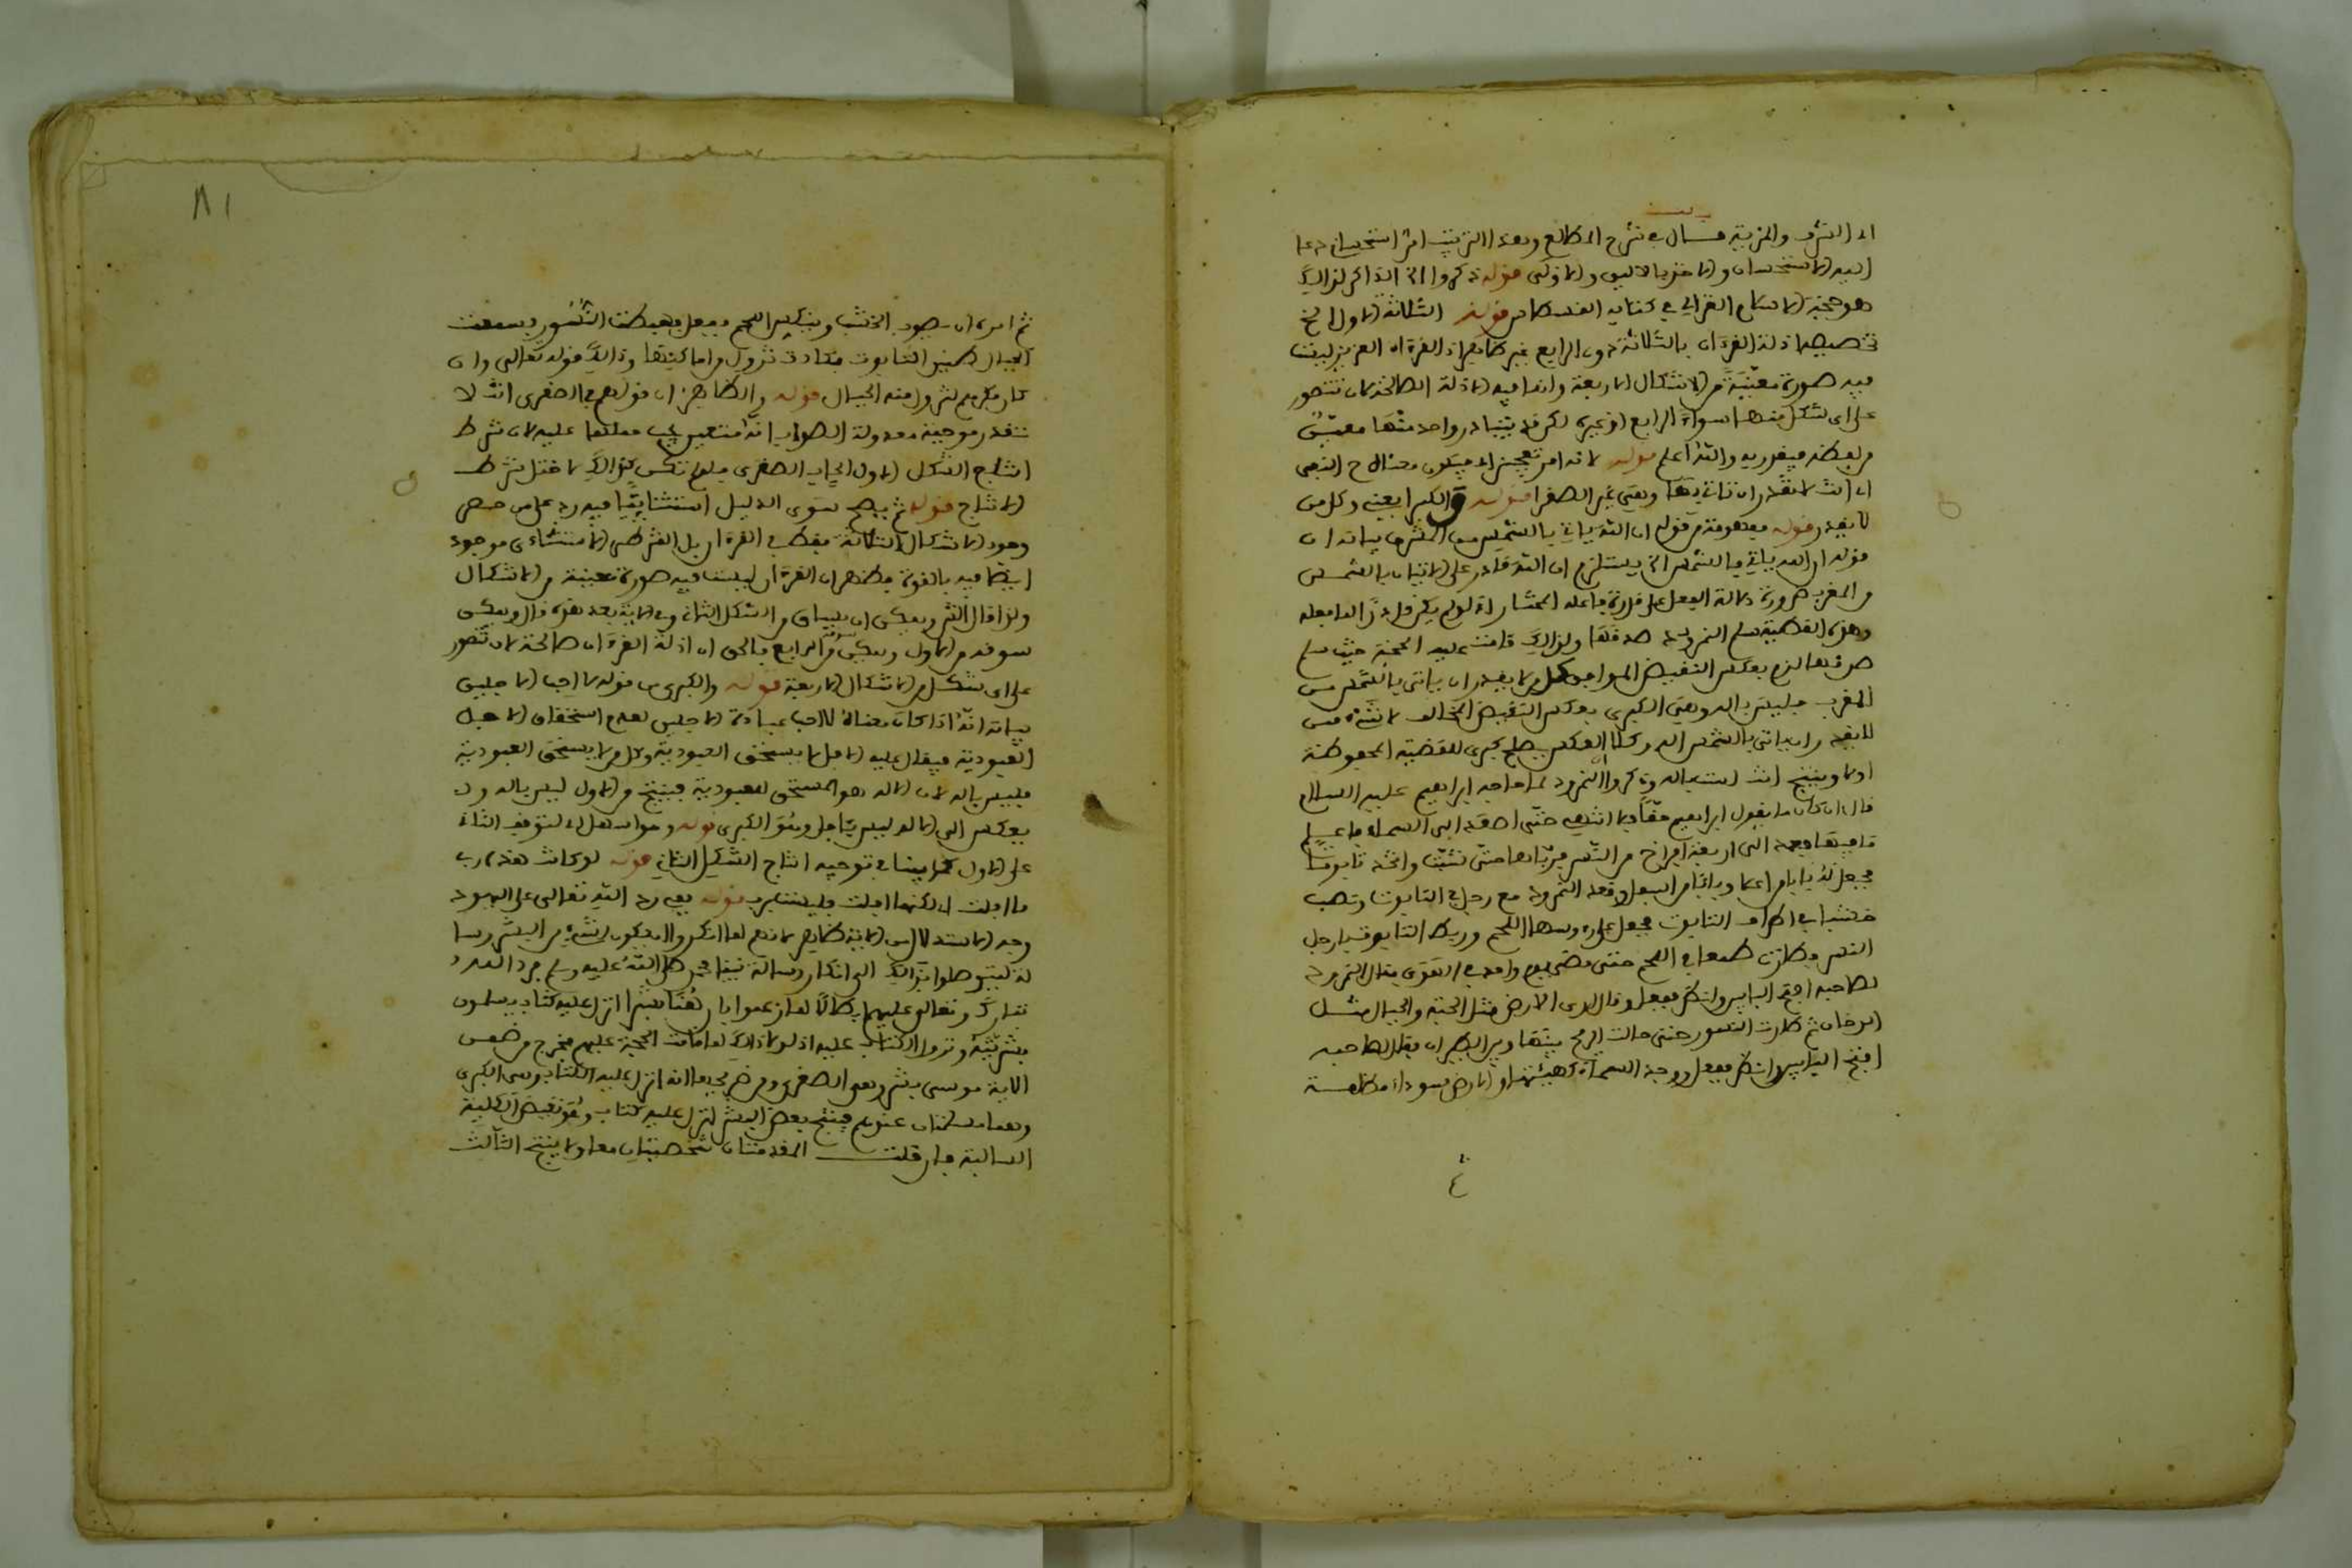 الى الشرف والمزية قال في شرح المطالع وبهذا الترتيب امر استحساني دعا
اليه الاستحسان والاخذ بالاليق والاولى قوله ذكروا الخ الذاكر لذالك
هو حجة الاسلام الغزالي في كتابه القسطاس قوله الثلاثة الاول الخ
تخصيص ادلة القرءان بالثلاثة دون الرابع غير ظاهر اذ القرءان العزيز ليست
فيه صورة معينة من الاشكال الاربعة وانما فيه الادلة الصالحة لان تتصور
على اي شكل منها سواء الرابع او غيره لكن قد يتبادر واحد منها معين
من لفظه فيقرر به والله اعلم قوله لانه امر تعجيز الى فيكون معناه ح النفي
اي انت لا تقدر ان تاتي بها وهي عين الصغرا قوله والكبرا يعني وكل من
لا يقدر قوله مفهومة من قوله ان الله ياتي بالشمس من المشرق بيانه ان
قوله ان الله ياتي بالشمس الخ يستلزم ان الله قادر على الاتيان بالشمس
من المغرب ضرورة دلالة الفعل على قدرة فاعله المختار اذ لو لم يكن قادرا لما فعله
وهذه القضية سلم النمرود صدقها ولذالك قامت عليه الحجة حيث سلم
صدقها لزم بعكس النقيض الموافق كل من لا يقدر ان ياتي بالشمس من
المغرب فليس باله وهي الكبرى بعكس النقيض المخالف لا شيء ممن
لا يقدر ان ياتي بالشمس اله وكلا العكسين يصلح كبرى للقضية المحفوظة
اولا وينتج انت لست باله وذكروا ان النمرود لما حاجه ابراهيم عليه السلام
قال ان كان ما يقول ابراهيم حقا فلا انتهي حتى اصعد الى السماء فاعلم
ما فيها فعمد الى اربعة افراخ من النسر فرباها حتى شبت واتخذ تابوتا
فجعل له بابا من اعلا وبابا من اسفل وقعد النمرود مع رجل في التابوت ونصب
خشبا في اطراف التابوت وجعل على رءوسها اللحم وربط التابوت بارجل
النسر فطارت طمعا في اللحم حتى مضى يوم وابعد في الهوى فقال النمرود
لصاحبه افتح الباب وانظر ففعل وقال ارى الارض مثل اللجة والجبال مثل
الدخان ثم طارت النسور حتى حالت الريح بينها وبين الطيران فقال لصاحبه
افتح البابين وانظر ففعل ووجد السماء كهيئتها والارض سوداء مظلمة
٨١
ثم امره ان يصوب الخشب وينكس اللحم ففعل فهبطت النسور فسمعت
الجبال حفيف التابوت فكادت تزول من اماكنها وذالك قوله تعالى وان
كان مكرهم لتزول منه الجبال قوله والظاهر ان قولهم في الصغرى انت لا
تقدر موجبة معدولة الصواب انه متعين يجب حملها عليه لان شرط
انتاج الشكل الاول ايجاب الصغرى فلو لم تكن كذالك لاختل شرط
الانتاج قوله ثم يصح سوى الدليل استثنائيا فيه رد على من حصر
وجود الاشكال الثلاثة فقط في القرءان بل الشرطي الاستثناءي موجود
ايضا فيه بالقوة فظهر ان القرءان ليست فيه صورة معينة من الاشكال
ولذا قال الش ويمكن ان يساق من الشكل الثاني وفي الاية بعد هذه قال ويمكن
سوقه من الاول ويمكن من الرابع فالحق ان ادلة القرءان صالحة لان تتصور
على اي شكل من الاشكال الاربعة قوله والكبرى من قوله لا احب الافلين
بيانه انه اذا كان معناه لا احب عبادة الافلين لعدم استحقاق الافل
العبودية فيقال عليه الافل لا يستحق العبودية وكل من لا يستحق العبودية
فليس باله لان الاله هو المستحق للعبودية فينتج من الاول ليس باله
بعكس الى الاله ليس بافل وهو الكبرى قوله
على الاول كما بينا في توجيه انتاج الشكل الثاني قوله لو كانت هذه رب
ما افلت لكنها افلت فليست برب قوله في رد الله تعالى على اليهود
وجه الاستدلال من الاية ظاهر لانهم لما انكروا ان يكون شيء من البشر
ليتوصلوا بذالك الى انكار رسالة نبينا محمد صلى الله عليه وسلم فرد الله
تبارك وتعالى عليهم ابطالا لما زعموا بان هنا بشرا انزل عليه كتاب يسلمون
بشريته ونزول الكتاب عليه اذ لولا ذالك لما قامت الحجة عليهم فخرج من ضمن
الاية موسى بشر وهي الصغرى ومن صريحها انه انزل عليه الكتاب وهي الكبرى
وهما مسلمتان عندهم فينتج بعض البشر انزل عليه كتاب وهو نقيض الكلية
السالبة فان قلت المقدمتان شخصيتان معا ولا ينتج الثالث